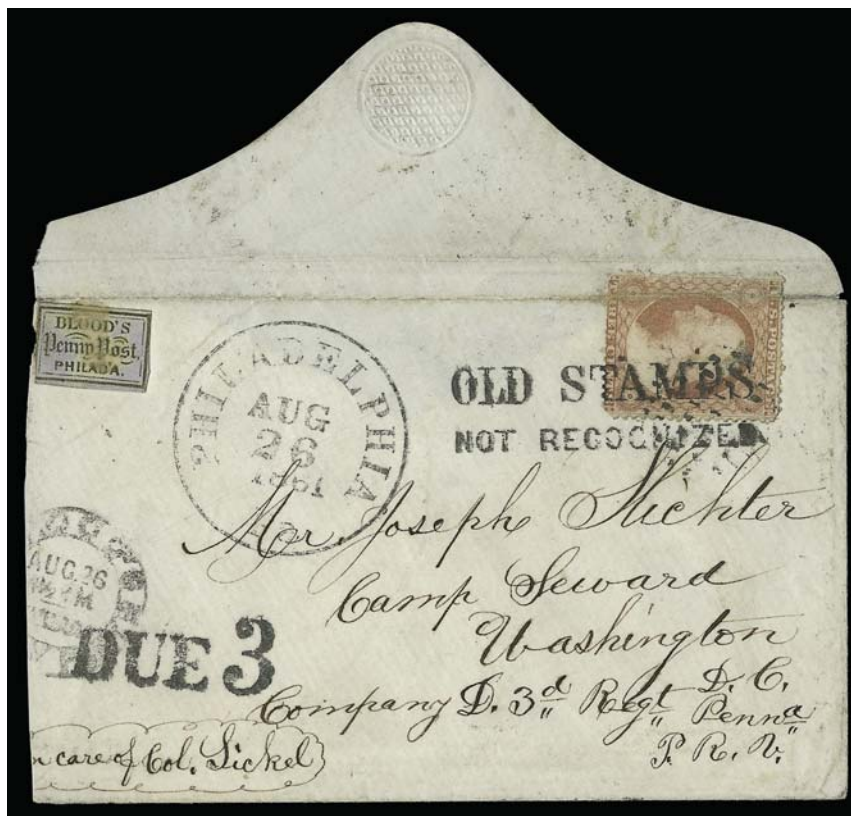 BLOOD'S
Penny Post,
PHILAD'A.
PHILADELPHIA
AUG
26
1861
OLD STAMPS
NOT RECOGNIZED
Mr. Joseph Slichter
Camp Seward
Washington
D. C.
Company D. 3d Regt Penna
P. R. V.
AUG. 26
DUE 3
care of Col. Sickel